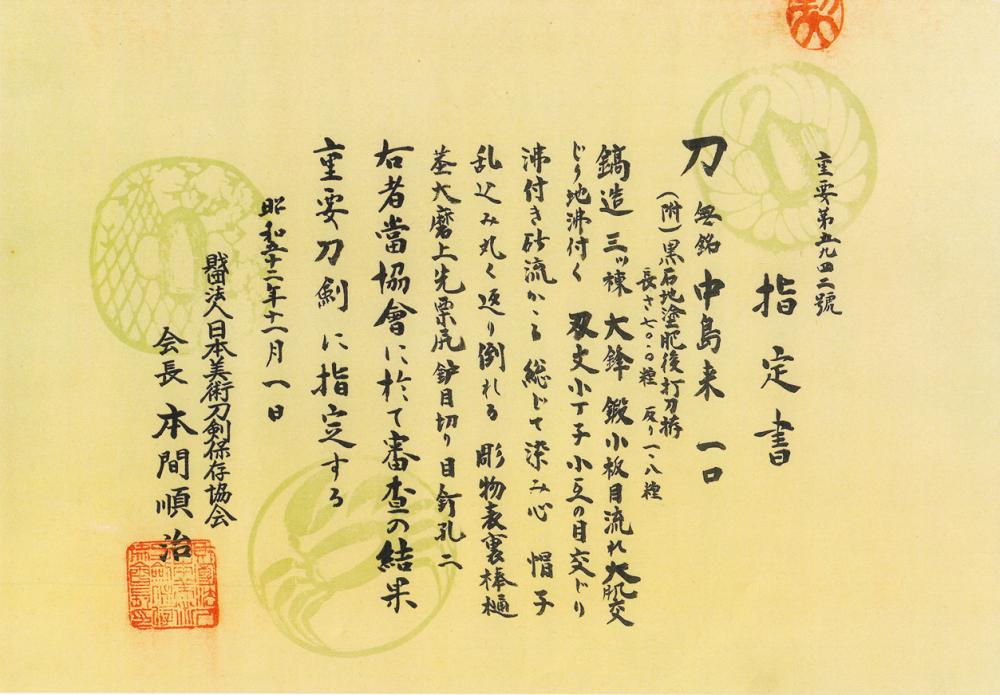 重要第五九四二號
指定書
刀 無銘 中島来 一口
(附)黒石地塗肥後打刀拵
長さ七〇・〇糎 反り一・八糎
鎬造 三ッ棟 大鋒 鍛小板目流れ大肌交
じり地沸付く 刃文小丁子小互の目交じり
沸付き砂流かゝる 総じて染み心 帽子
乱込み丸く返り倒れる 彫物表裏棒樋
茎大磨上先栗尻鈩目切り目釘孔二
右者當協會に於て審査の結果
重要刀剣に指定する
昭和五十二年十一月一日
財団法人日本美術刀剣保存協会
会長 本間順治